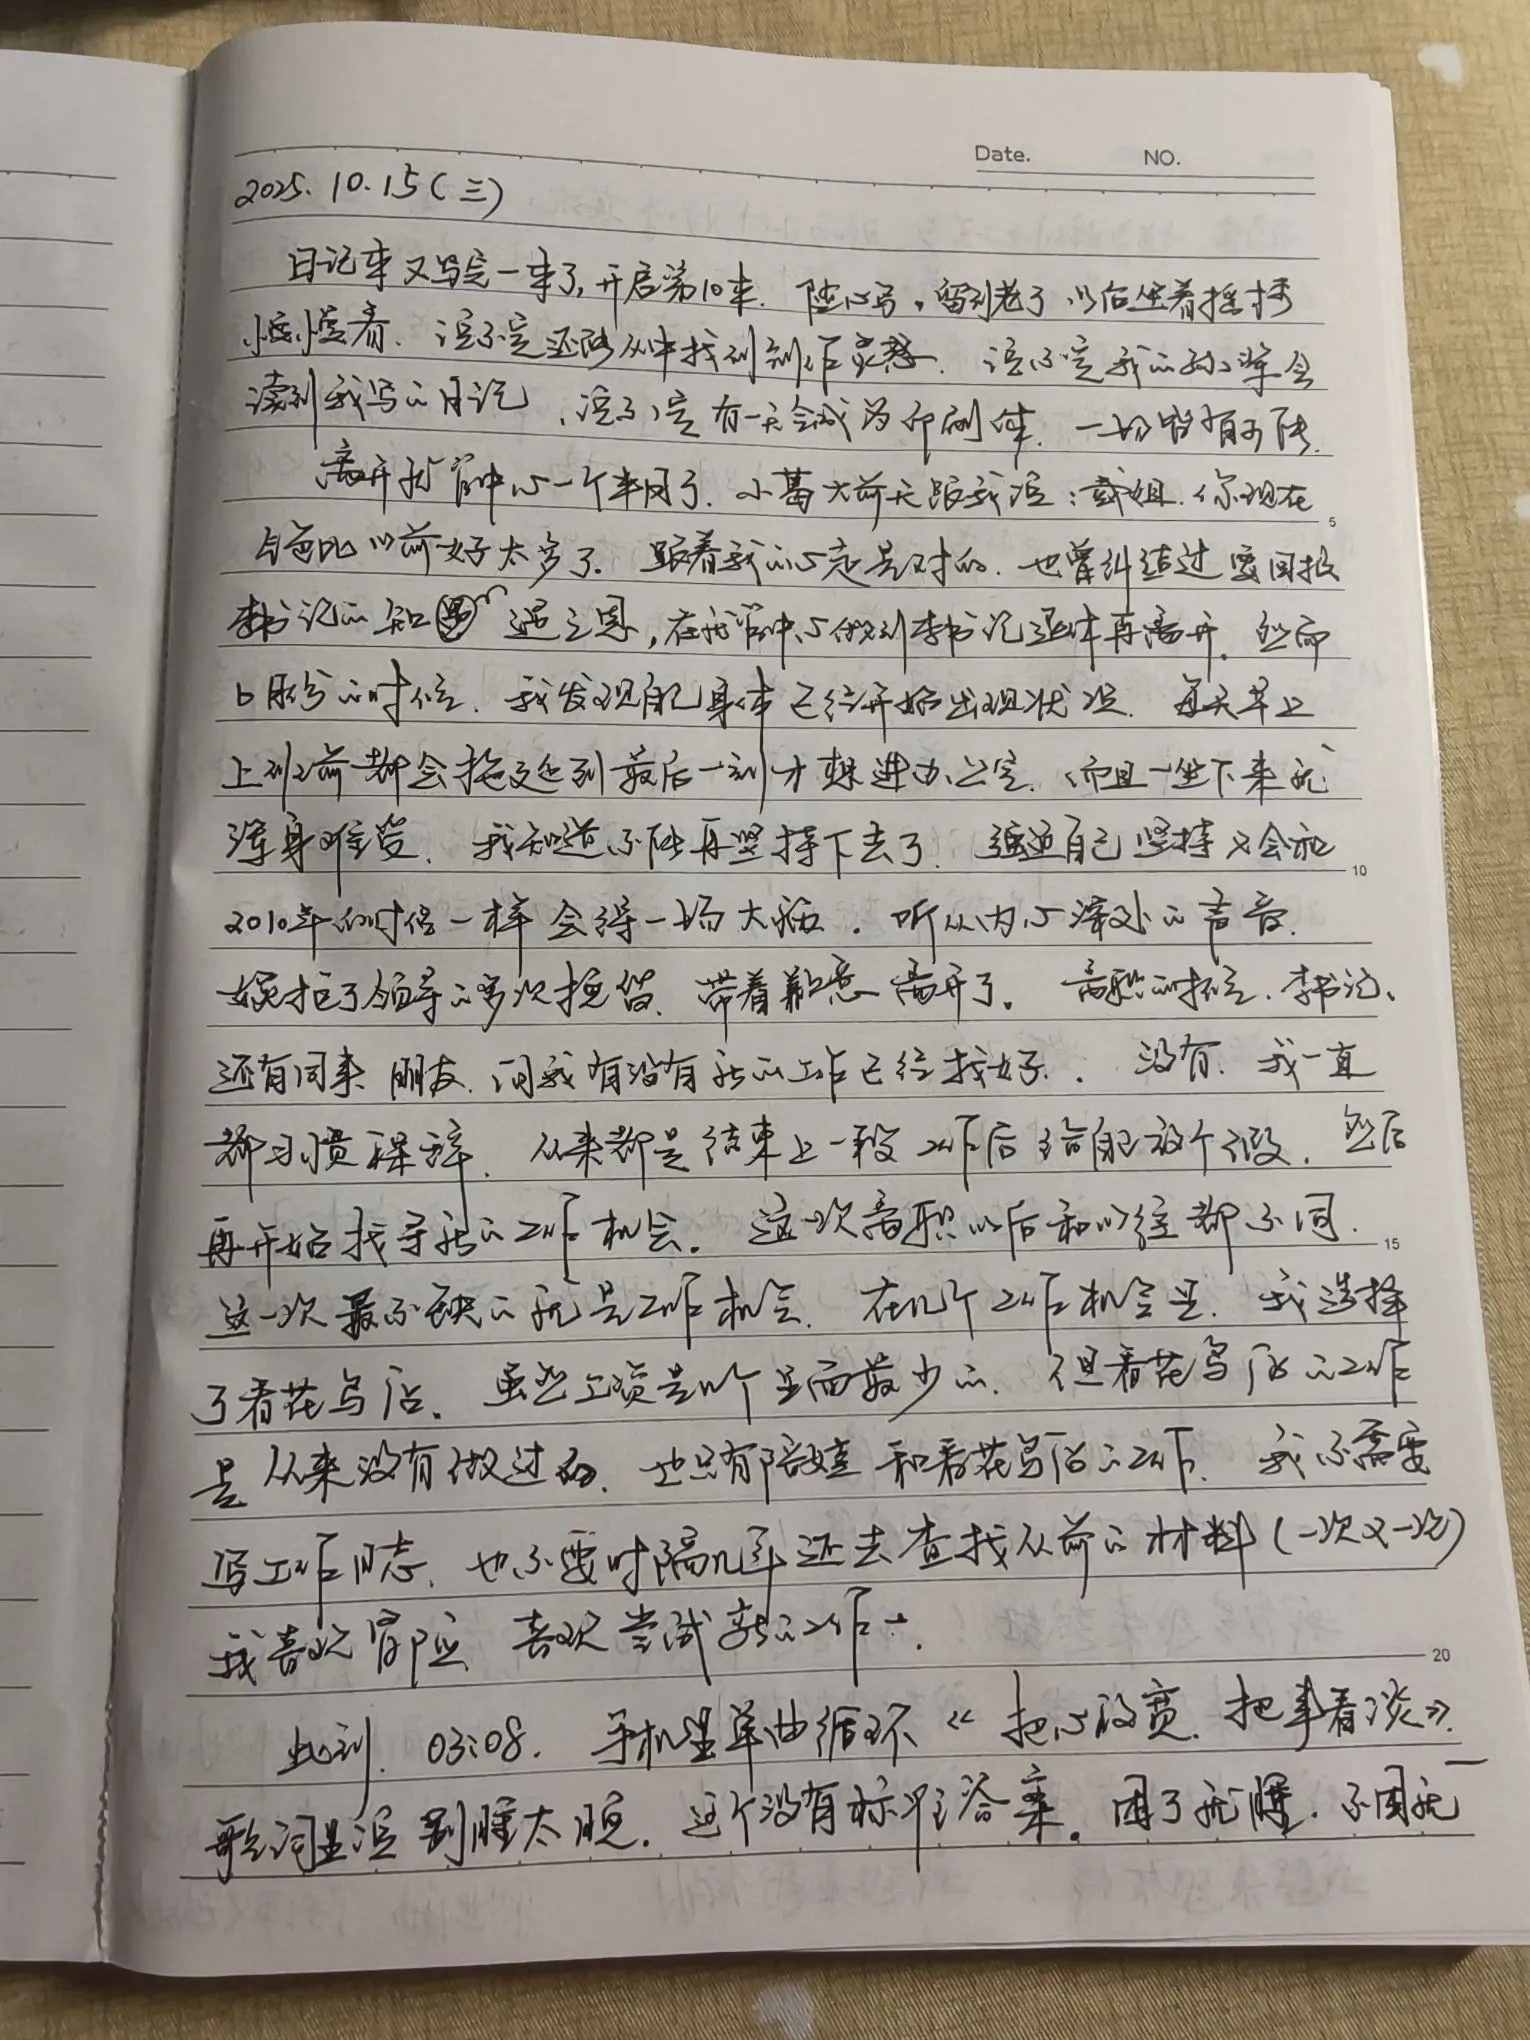 Date. NO.
2025.10.15(三)
日记本又写完一本了,开启第10本. 随心写,留到老了以后坐着摇椅
慢慢看. 说不定还能从中找到创作灵感. 说不定我的孙辈会
读到我写的日记,说不定有一天会成为印刷体. 一切皆有可能.
离开托管中心一个半月了. 小葛大前天跟我说:彭姐.你现在
气色比以前好太多了. 跟着我的心走是对的. 也曾纠结过要回报
李书记的知遇之恩,在托管中心做到李书记退休再离开. 然而
6月份的时候. 我发现自己身体已经开始出现状况. 每天早上
上班前都会拖延到最后一刻才想进办公室. 而且一坐下来就
浑身难受. 我知道不能再坚持下去了. 强迫自己坚持又会和
2010年的时候一样会得一场大病. 听从内心深处的声音.
婉拒了领导的多次挽留. 带着歉意离开了. 离职的时候.李书记、
还有同事 朋友.问我有没有新的工作已经找好. 没有. 我一直
都习惯裸辞. 从来都是结束上一段工作后给自己放个假. 然后
再开始找寻新的工作机会. 这一次离职以后和以往都不同.
这一次最不缺的就是工作机会. 在几个工作机会里. 我选择
了看花鸟店. 虽然工资是几个里面最少的. 但看花鸟店的工作
是从来没有做过的. 也只有陪娃和看花鸟店的工作. 我不需要
写工作日志. 也不要时隔几年还去查找从前的材料(一次又一次)
我喜欢冒险 喜欢尝试新的工作.
此刻. 03:08. 手机里单曲循环《把心放宽.把事看淡》.
歌词里说别睡太晚. 这个没有标准答案. 困了就睡.不困就